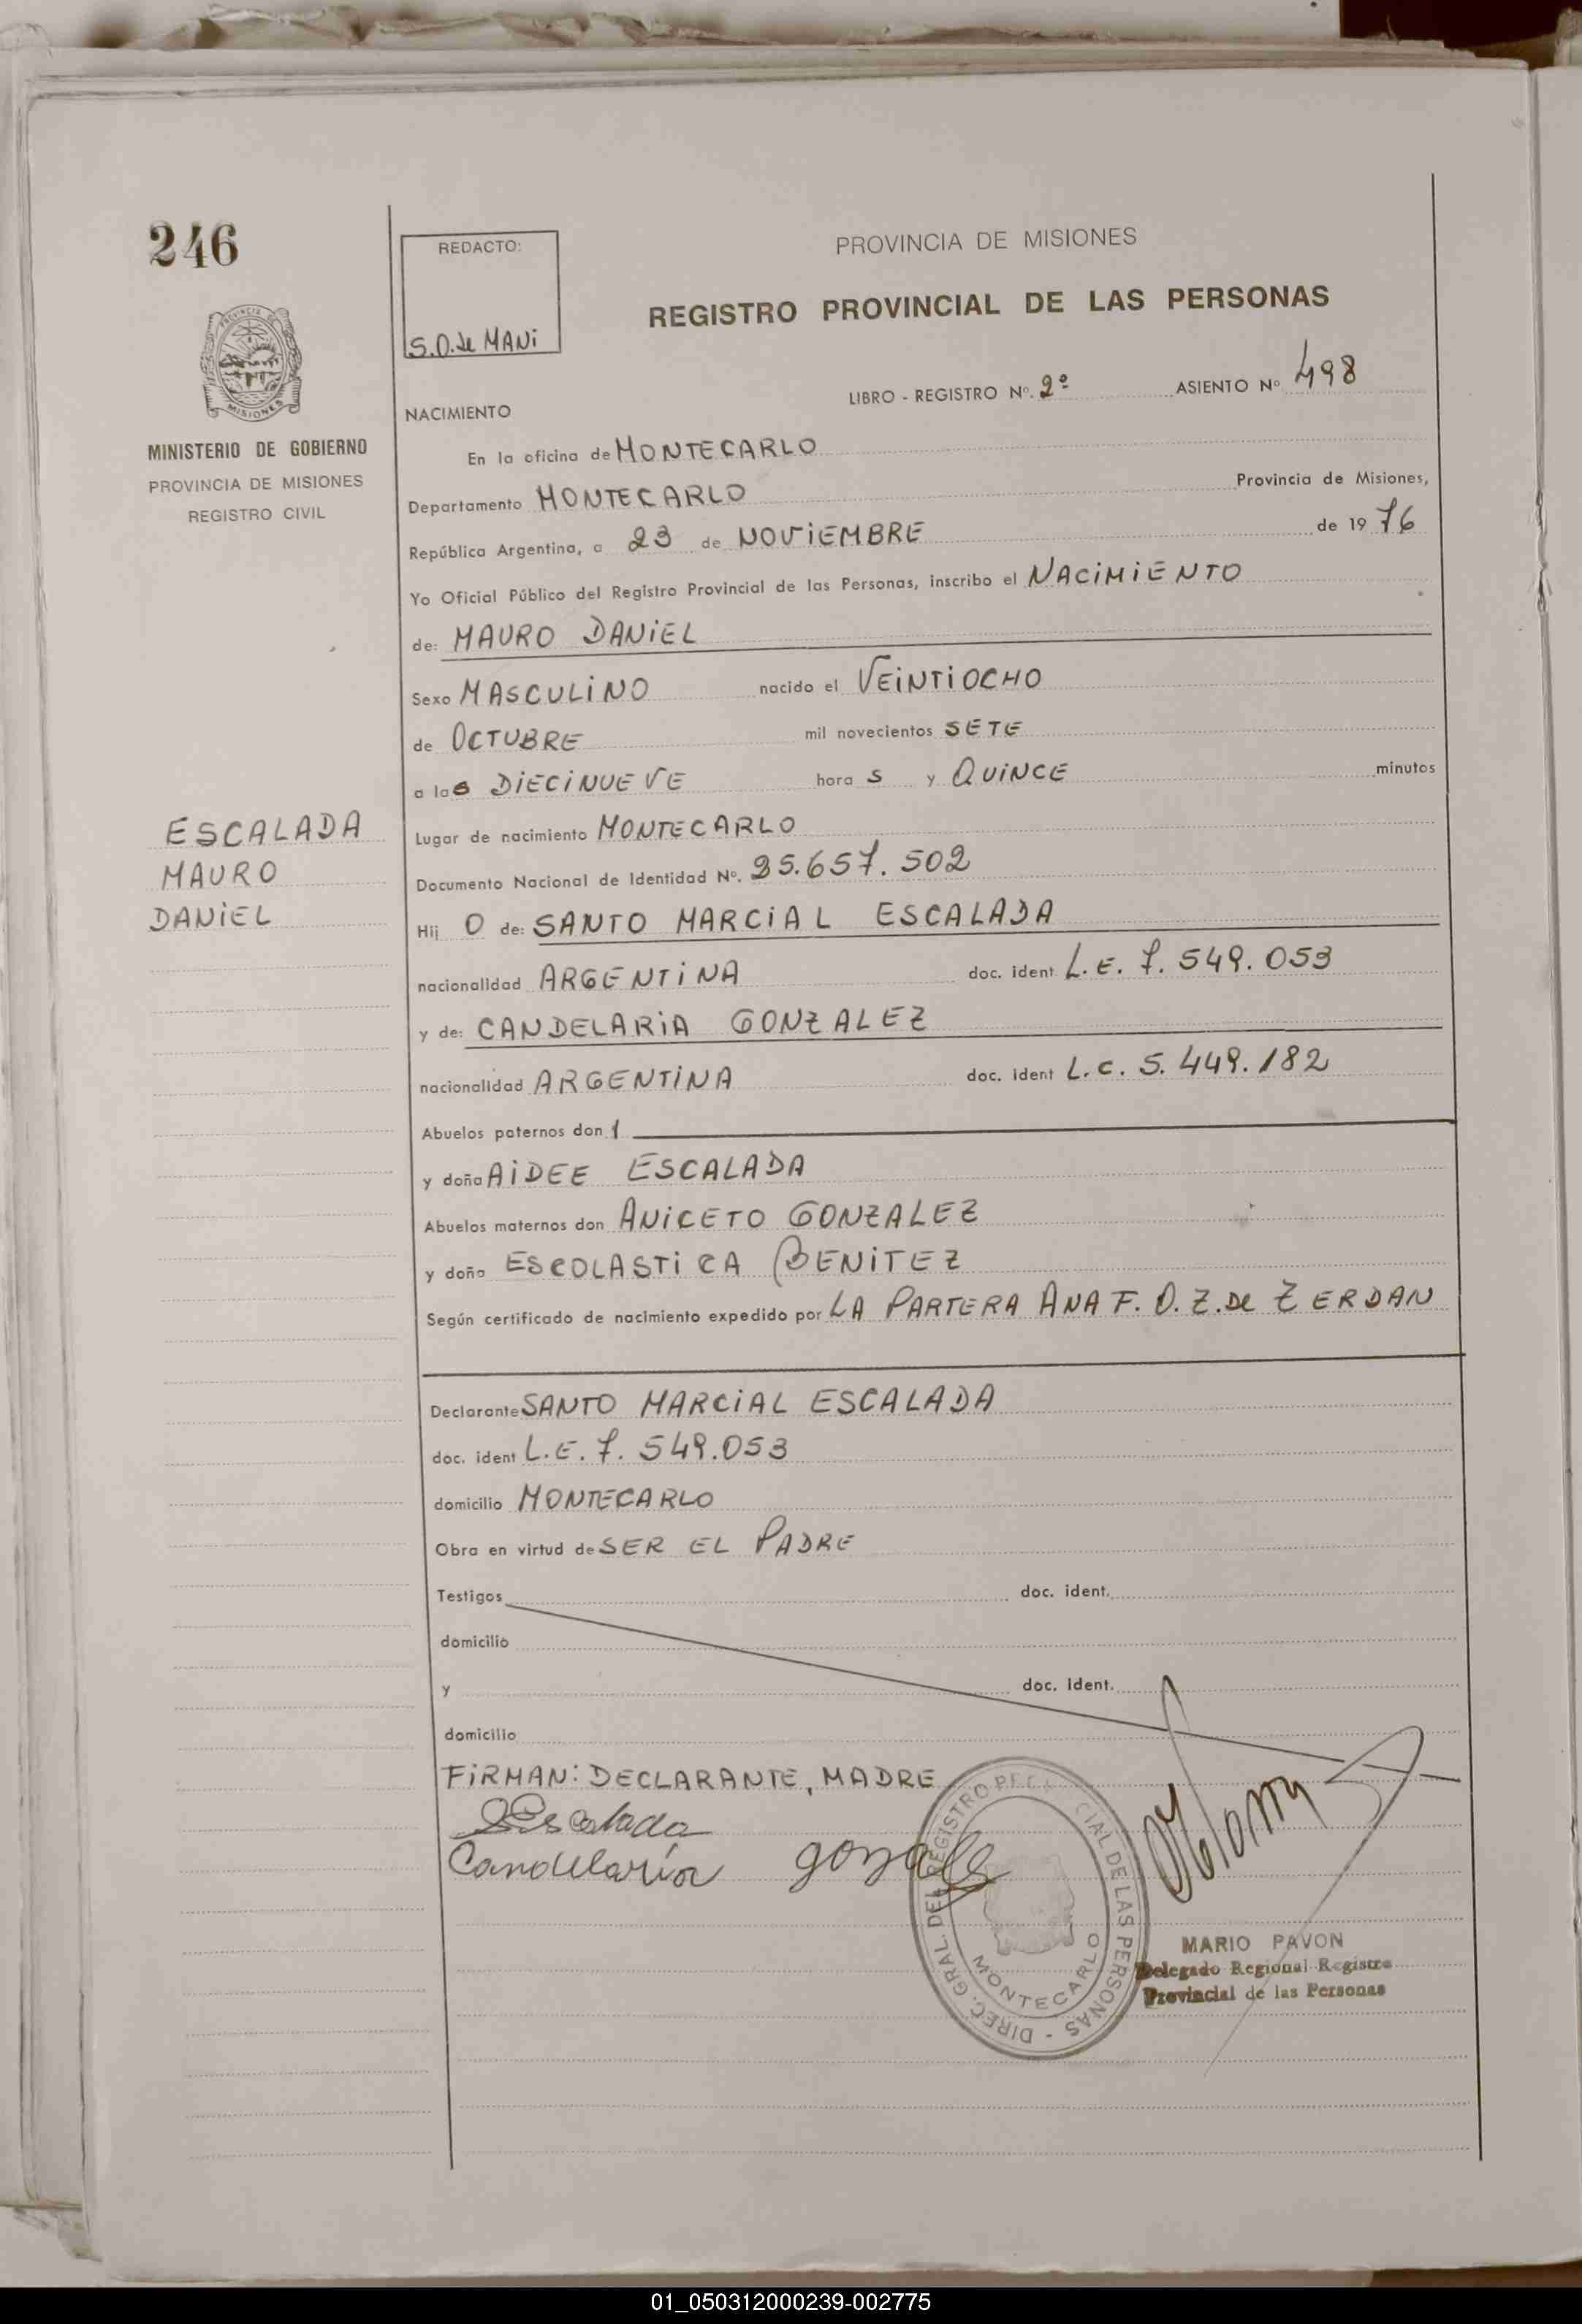 246
REDACTO:
S.O. de MANI
PROVINCIA DE MISIONES
REGISTRO PROVINCIAL DE LAS PERSONAS
MISIONES
MINISTERIO DE GOBIERNO
PROVINCIA DE MISIONES
REGISTRO CIVIL
LIBRO - REGISTRO Nº. 2º ASIENTO Nº 498
NACIMIENTO
En la oficina de MONTECARLO
Departamento MONTECARLO Provincia de Misiones,
República Argentina, a 23 de NOVIEMBRE de 19 76
Yo Oficial Público del Registro Provincial de las Personas, inscribo el NACIMIENTO
de: MAURO DANIEL
Sexo MASCULINO nacido el VEINTIOCHO
de OCTUBRE mil novecientos SETE
a las DIECINUEVE hora s y QUINCE minutos
ESCALADA
MAURO
DANIEL
Lugar de nacimiento MONTECARLO
Documento Nacional de Identidad Nº. 25.657.502
Hij O de: SANTO MARCIAL ESCALADA
nacionalidad ARGENTINA doc. ident L.E. 7.549.053
y de: CANDELARIA GONZALEZ
nacionalidad ARGENTINA doc. ident L.C. 5.449.182
Abuelos paternos don
y doña AIDEE ESCALADA
Abuelos maternos don ANICETO GONZALEZ
y doña ESCOLASTICA BENITEZ
Según certificado de nacimiento expedido por LA PARTERA ANA F. O. Z. De ZERDAN
Declarante SANTO MARCIAL ESCALADA
doc. ident L.E. 7.549.053
domicilio MONTECARLO
Obra en virtud de SER EL PADRE
Testigos doc. ident.
domicilio
y doc. ident.
domicilio
FIRMAN: DECLARANTE, MADRE
SEscalada
Candelaria gonzalez
DIREC. GRAL. DEL REGISTRO PROVINCIAL DE LAS PERSONAS -
MONTECARLO
MARIO PAVON
Delegado Regional Registro
Provincial de las Personas
01_050312000239-002775